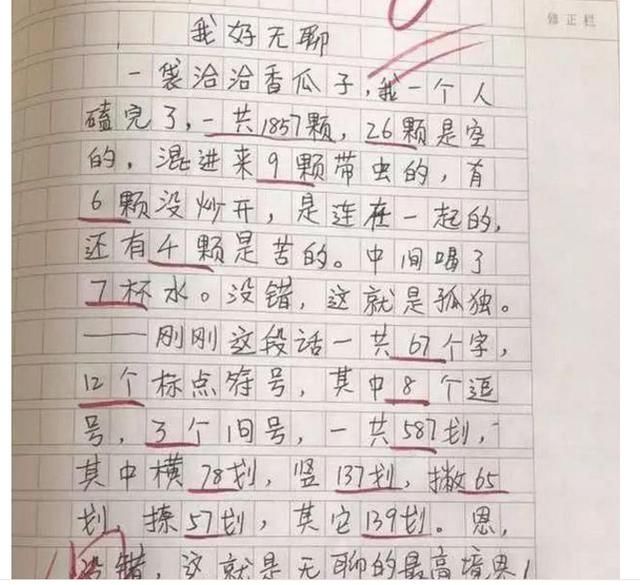 修正栏
我好无聊
一袋洽洽香瓜子,我一个人
磕完了,一共1857颗,26颗是空
的,混进来9颗带虫的,有
6颗没炒开,是连在一起的,
还有4颗是苦的。中间喝了
7杯水。没错,这就是孤独。
——刚刚这段话一共67个字,
12个标点符号,其中8个逗
号,3个旧号,一共587划,
其中横78划,竖137划,撇65
划,捺57划,其它139划。恩,
没错,这就是无聊的最高境界!